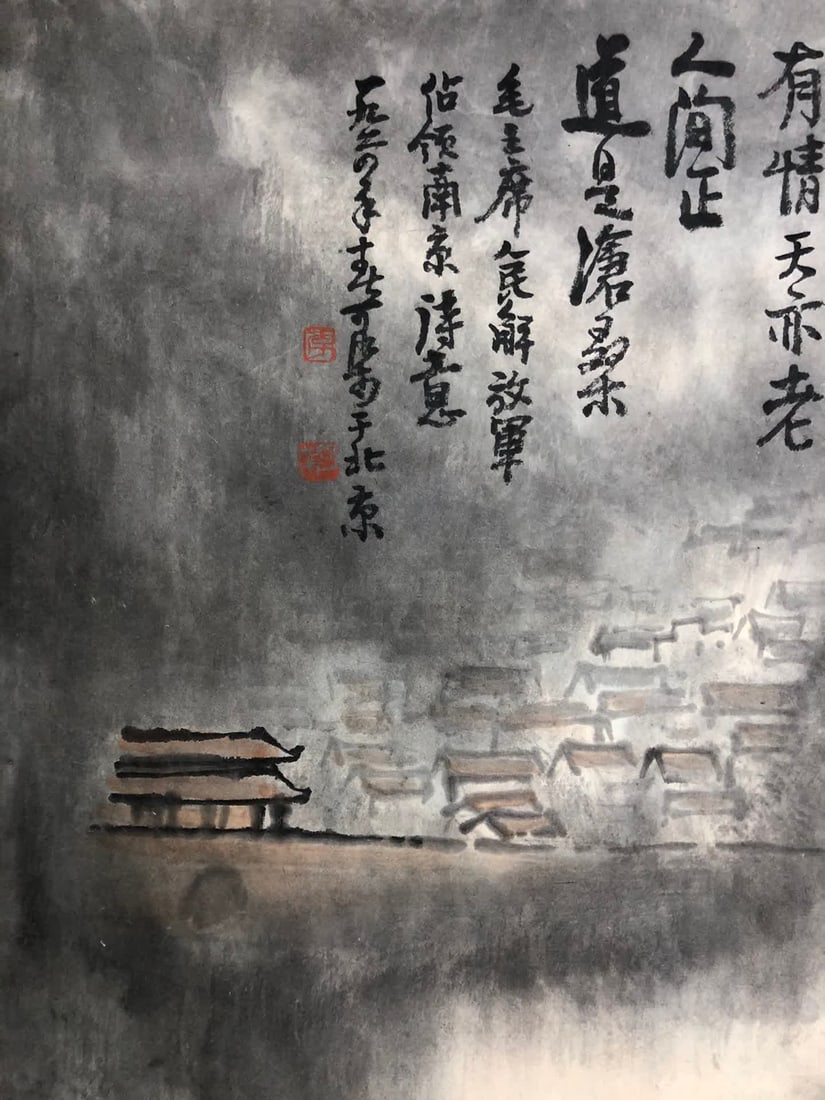 有情天亦老
人间正
道是滄桑
毛主席人民解放軍
佔领南京詩意
一九六四年春可染于北京